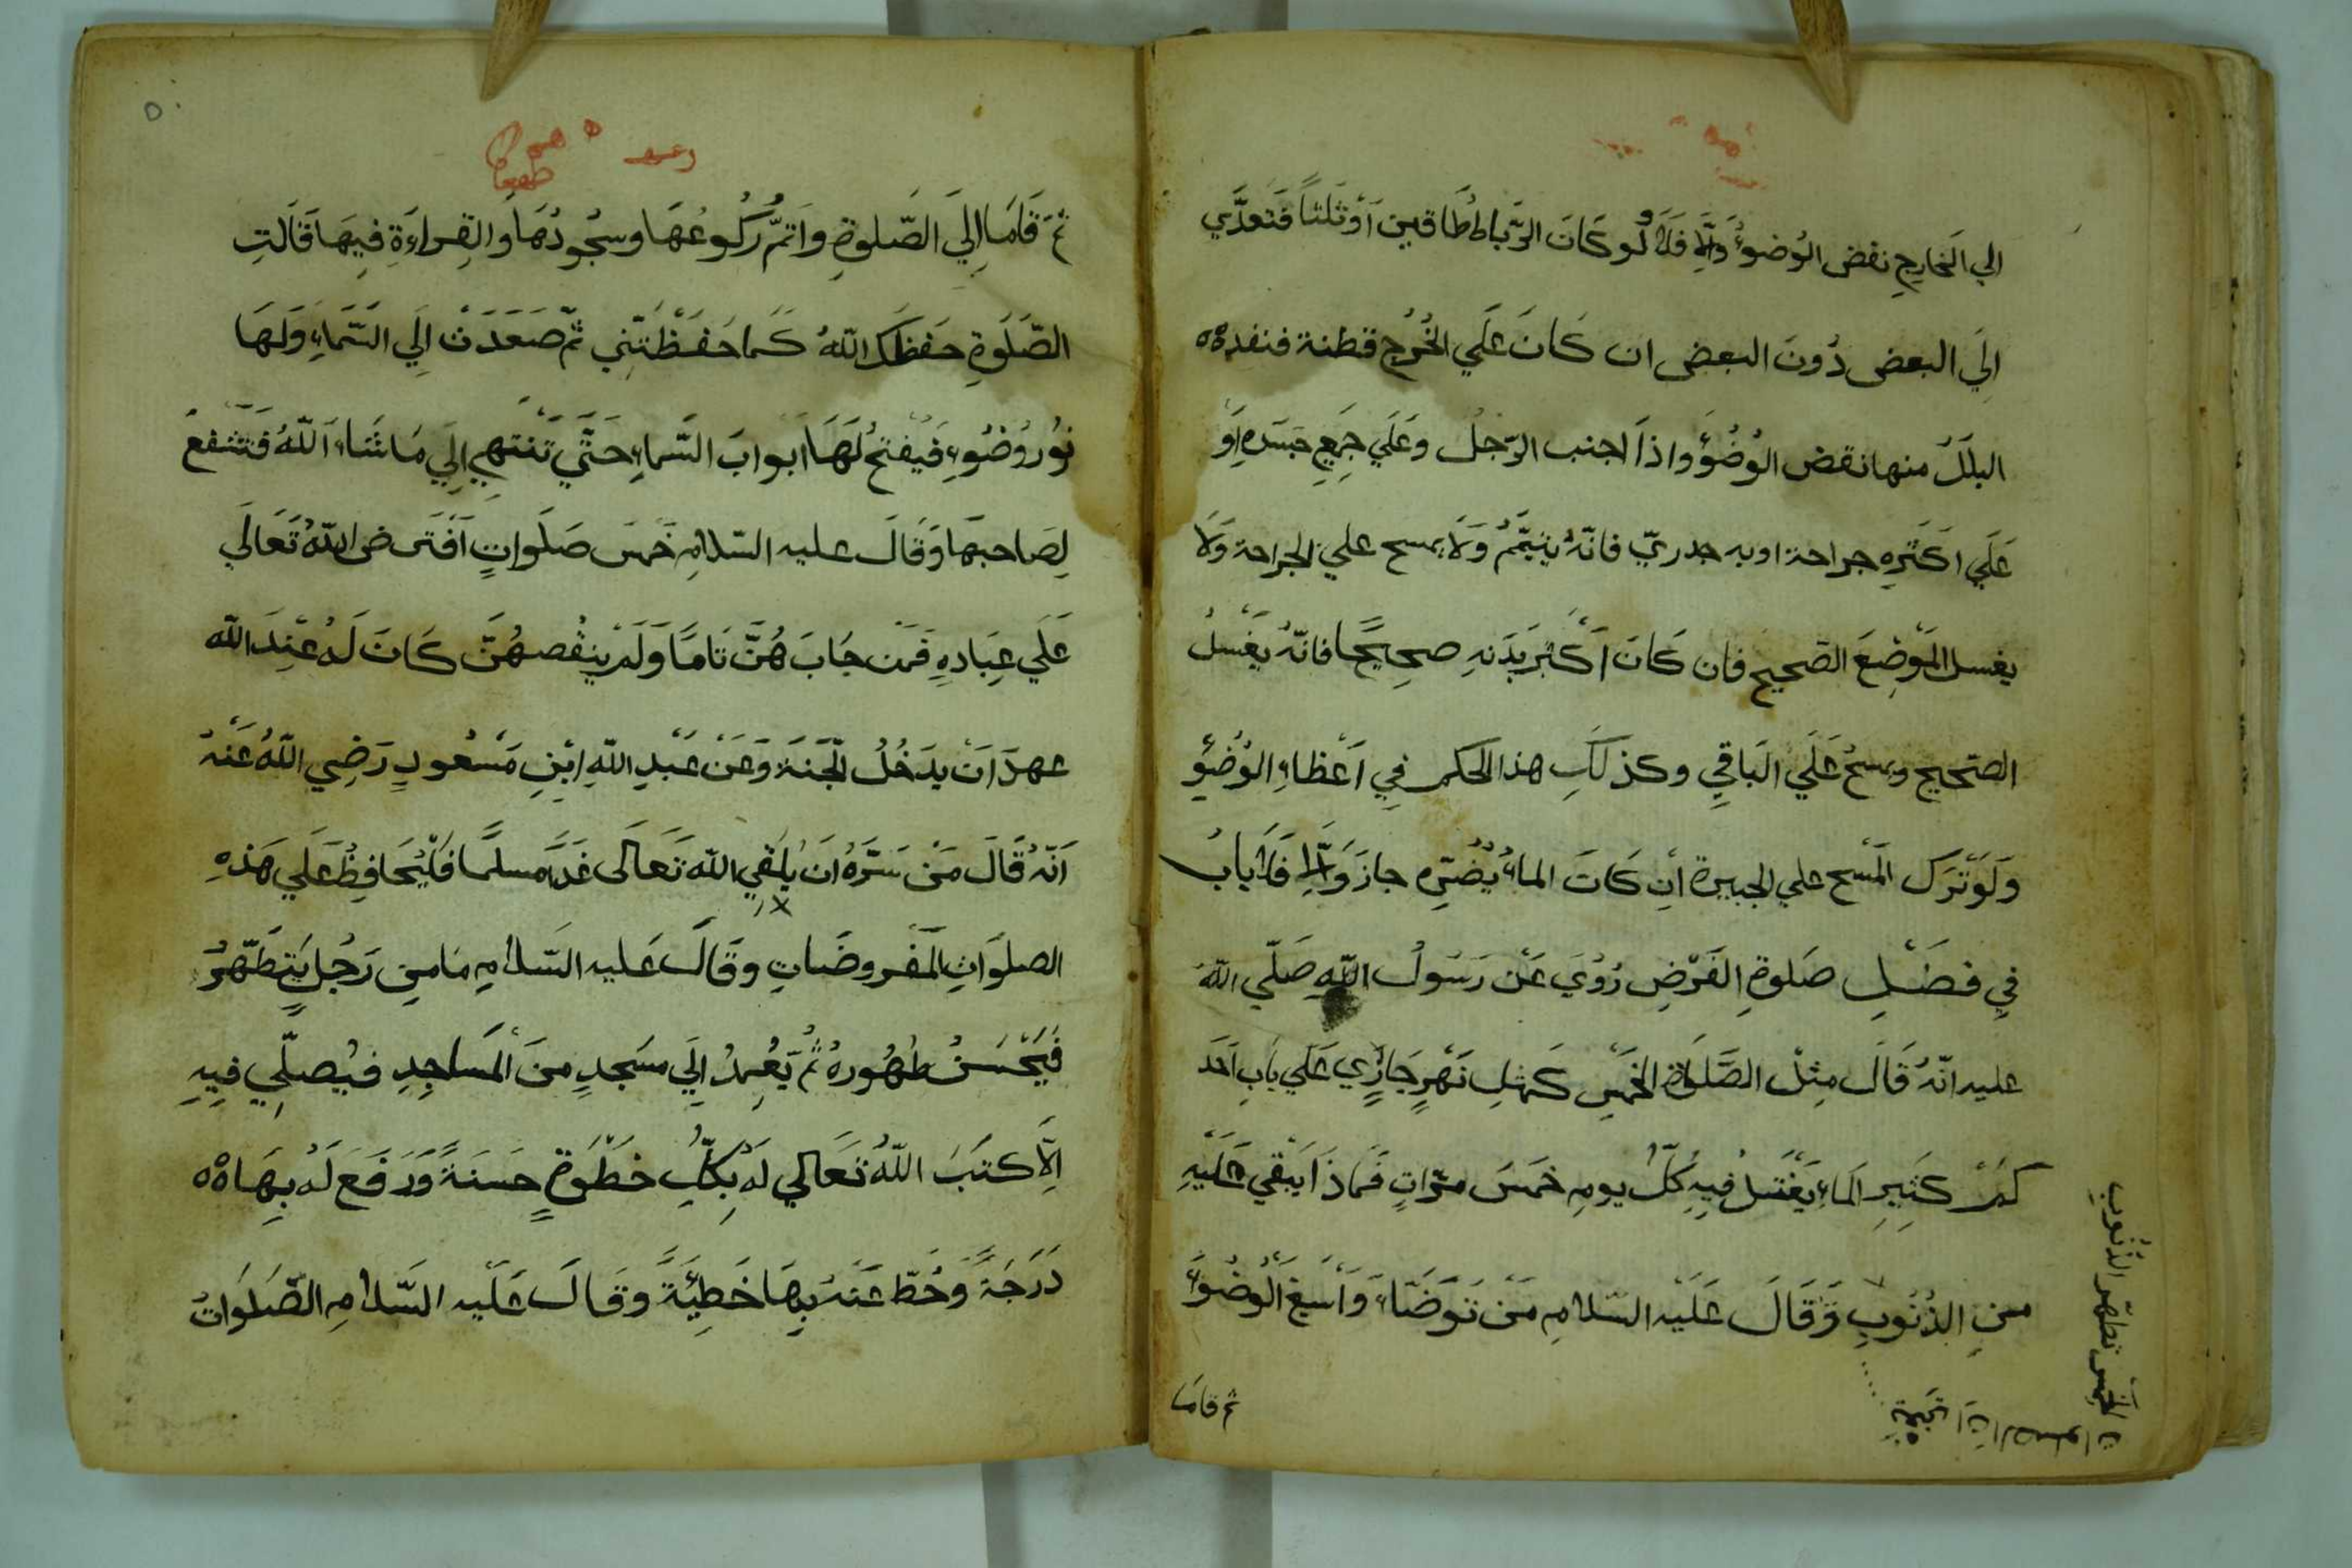 الي الخارج نقض الوُضوءُ وَاِلَّا فَلَا وَلَو كَانَ الرّباط طَاقين اَوْ ثَلثاً فَتعدَّي
اِلَي البعض دُونَ البعض ان كَانَ عَلَي الخُرُج قطنة فنفد
البلَلُ منها نقض الوُضُؤُ واذَا اجنب الرّجلُ وعَلَي جَمِعِ جَسَدِه اَوْ
عَلَي اَكثَرِه جراحة او به جدريّ فانّهُ يتيمَّمُ وَلَا يمسح علي الجراحة وَلَا
يغسل المَوْضِعَ الصّحيح فان كَانَ اَكْثر بَدَنهِ صحِيحًا فانّهُ يَغْسلُ
الصّحيح ويمسحُ عَلَي البَاقي وكذلَكَ هذا الحكم في اَعْظَاءِ الوُضُوِء
وَلَوْ تَرَك المَسْح علي الجبيرة اِن كَانَ الماءُ يُضُرّه جازَ وَاِلَّا فَلَا بابُ
فِي فضَْلِ صَلوةِ الفَرْضِ رُوُيَ عَنْ رَسُولُ اللّهِ صَلّي اللّهُ
عليه انّهُ قَالَ مِثلْ الصَّلَوَاة الخَمْسِ كَمثلِ نَهْرٍ جَارِي عَلَي بَابِ اَحَد
كمْ كثيِرِ المَاءِ يَغْتَسلُ فِيهِ كُلّ يومِ خَمسَ مرّاتٍ فَمَاذَا يَبْقي عَلَيْهِ
منِ الذُنُوبِ وَقَالَ عَلَيْه السّلامِ مَنْ تَوَضّاءَ وَاَسْبغَ الْوُضُوءَ
الخمس تطهّر الذُنُوبِ
ثم قامَا
ثمَ قَامَا اِلَي الصّلوةِ وَاَتمُّ رُكُوعُهَا وسجُودُهَا وَالقِراءَةِ فِيهَا قَالَتِ
الصَّلَوةِ حَفظَكَ اللّهُ كَما حَفَظْتَنِي ثمّ صَعَدَتْ اِلَي السّمَاءِ وَلهَا
نوُر وُضُوءِ فَيُفْتحُ لَهَا ابوابَ السّماءِ حَتَّي تَنْتهِي اِلَي مَا شَاءَ اَللّهُ فَتَشفعُ
لِصَاحبهَا وَقَالَ عليه السّلامِ خَمسَ صَلَواتٍ اَفْتَرض اللّهُ تَعَالَي
عَلَي عِبَادِهِ فَمَن جَابَ هُنَّ تَامًا وَلَمْ ينقُصهُنَّ كَانَ لَهُ عنِدَ اللّه
عهدَ اَنْ يدَخُلُ الْجَنةَ وَعَنْ عَبْدِ اللّهِ ابْنِ مَسْعودٍ رَضِي اللّهُ عَنْهُ
اَنّهُ قَالَ مَنْ سَرَّهُ اَنْ يلقي اللّه تَعَالَى غَدًا مسلمًا فَلْيُحَافِظُ عَلَي هَذهِ
الصلوَاتِ المَفروضَاتِ وقَالَ عَليه السّلامِ مَا مِن رَجُلٍ يَتِطَهّرُ
فَيَحْسَنُ طُهُورهُ ثُمّ يَعْمدُ اِلَي مسَجدٍ منَ المَساجِدِ فيُصلّيِ فيِهِ
اِلَّا كَتبَ اللّهُ تَعَالي لَهُ بكلِّ خطْوَةٍ حسَنَةً وَرَفَعَ لَهُ بهَا
دَرَجَةً وَحُطّ عَنْهُ بِهَا خَطِيْئَةً وقَالَ عَلَيه السّلامِ الصَّلَوَاتُ